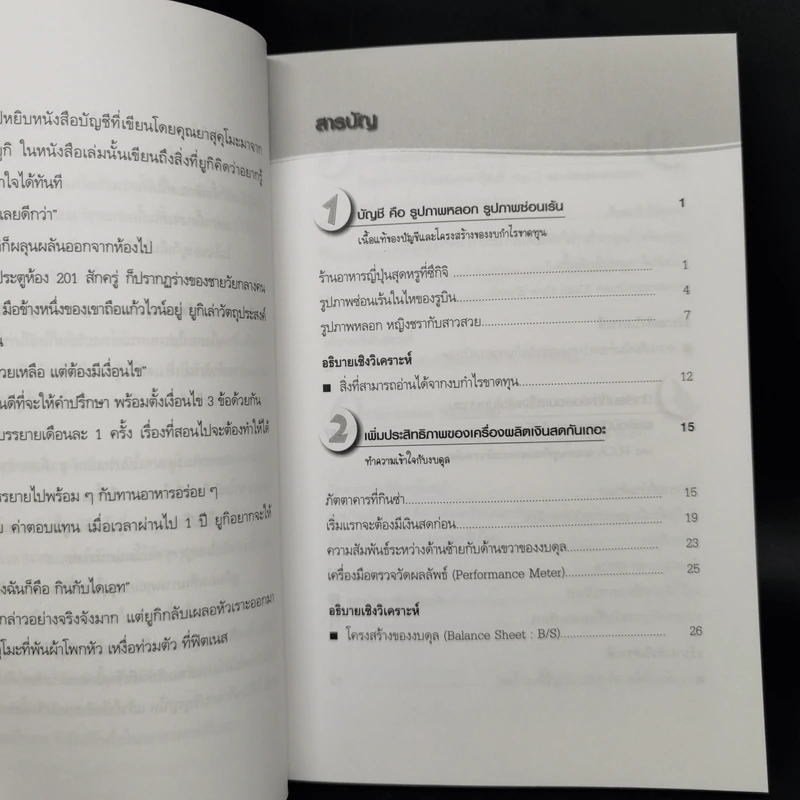 ปหยิบหนังสือบัญชีที่เขียนโดยคุณยาสุคุโมะมาจาก
ูกิ ในหนังสือเล่มนั้นเขียนถึงสิ่งที่ยูกิคิดว่าอยากรู้
าใจได้ทันที
เลยดีกว่า”
ก็ผลุนผลันออกจากห้องไป
ประตูห้อง 201 สักครู่ ก็ปรากฏร่างของชายวัยกลางคน
มือข้างหนึ่งของเขาถือแก้วไวน์อยู่ ยูกิเล่าวัตถุประสงค์
น
วยเหลือ แต่ต้องมีเงื่อนไข”
นดีที่จะให้คำปรึกษา พร้อมตั้งเงื่อนไข 3 ข้อด้วยกัน
บรรยายเดือนละ 1 ครั้ง เรื่องที่สอนไปจะต้องทำให้ได้
รรยายไปพร้อม ๆ กับทานอาหารอร่อย ๆ
ย ค่าตอบแทน เมื่อเวลาผ่านไป 1 ปี ยูกิอยากจะให้
งฉันก็คือ กินกับไดเอท”
กล่าวอย่างจริงจังมาก แต่ยูกิกลับเผลอหัวเราะออกมา
ุโมะที่พันผ้าโพกหัว เหงื่อท่วมตัว ที่ฟิตเนส
สารบัญ
1 บัญชี คือ รูปภาพหลอก รูปภาพซ่อนเร้น 1
เนื้อแท้ของบัญชีและโครงสร้างของงบกำไรขาดทุน
ร้านอาหารญี่ปุ่นสุดหรูที่ซึกิจิ 1
รูปภาพซ่อนเร้นในไหของรูบิน 4
รูปภาพหลอก หญิงชรากับสาวสวย 7
อธิบายเชิงวิเคราะห์
■ สิ่งที่สามารถอ่านได้จากงบกำไรขาดทุน 12
2 เพิ่มประสิทธิภาพของเครื่องผลิตเงินสดกันเถอะ 15
ทำความเข้าใจกับงบดุล
ภัตตาคารที่กินซ่า 15
เริ่มแรกจะต้องมีเงินสดก่อน 19
ความสัมพันธ์ระหว่างด้านซ้ายกับด้านขวาของงบดุล 23
เครื่องมือตรวจวัดผลลัพธ์ (Performance Meter) 25
อธิบายเชิงวิเคราะห์
■ โครงสร้างของงบดุล (Balance Sheet : B/S) 26